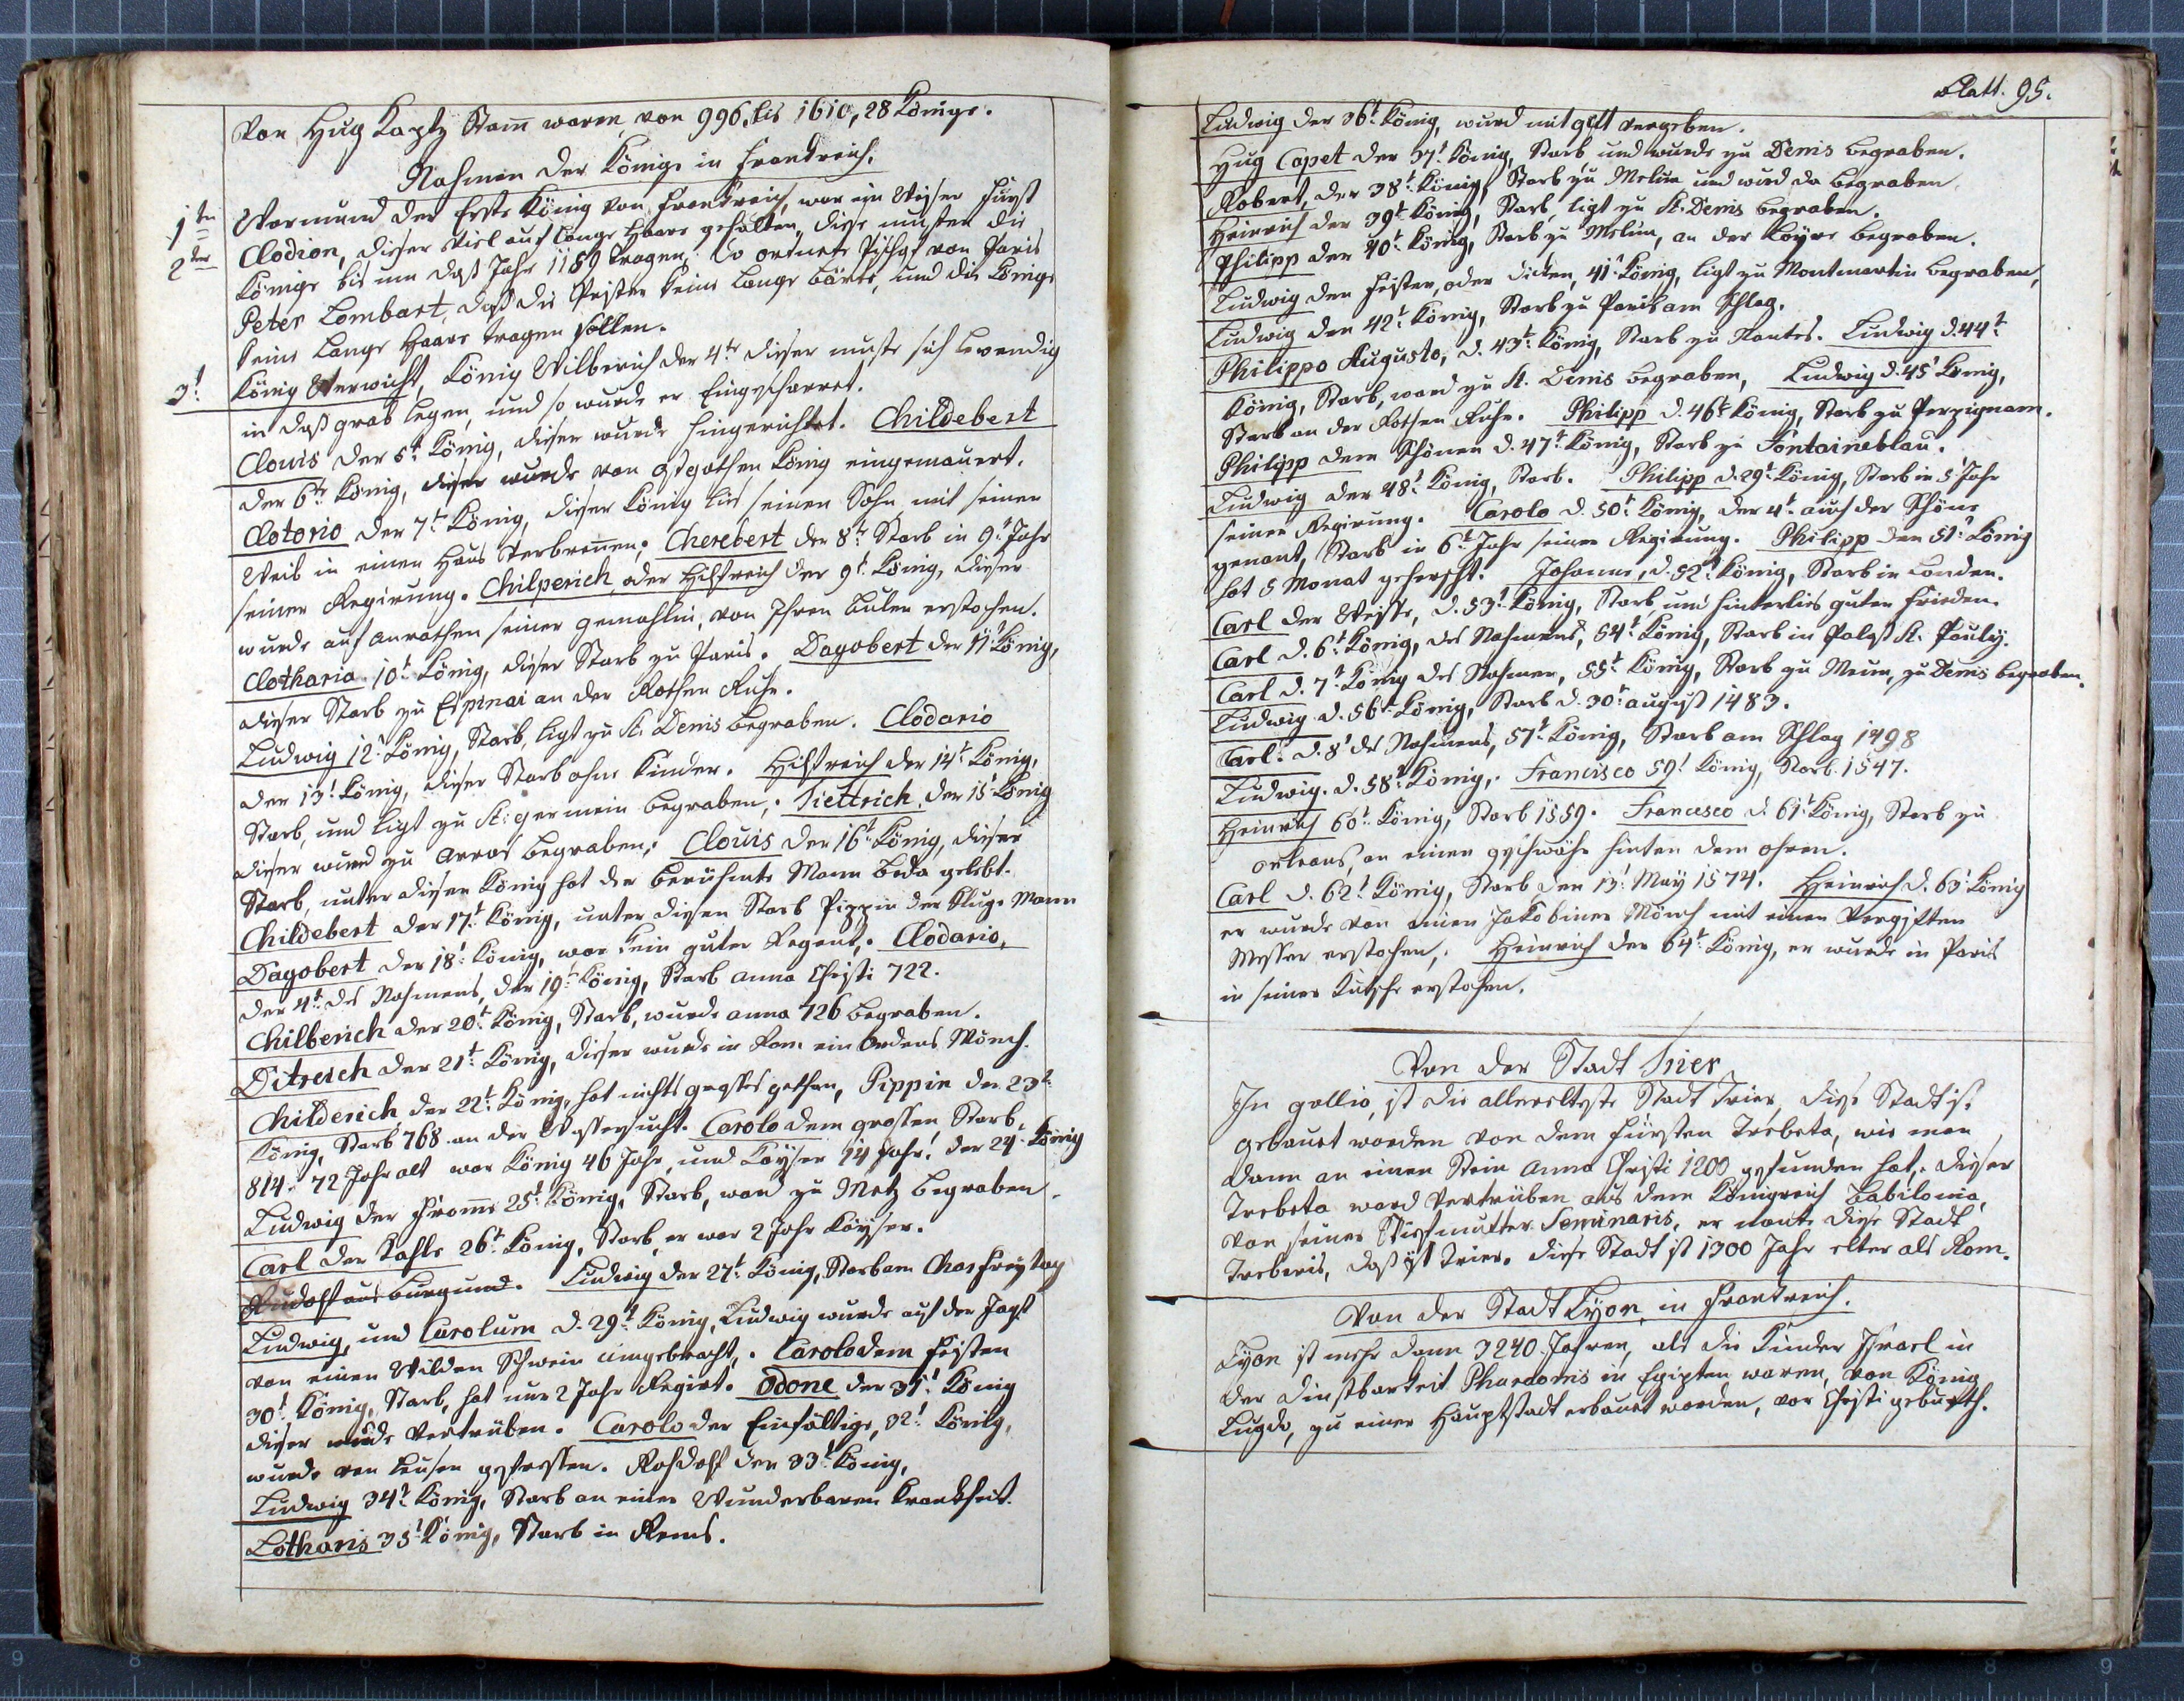 Von Hug Kaptz Stam̄ waren, von 996, bis 1610, 28 Könige.
Nahmen der Könige in Franckreich.
1ter Warmund der Erste König von Franckreich, war ein Weiser Fürst
2ter Clodion, dieser Viel auf lange Haare gehalten, diese musten die
Könige bis um daß Jahr 1159 tragen, Do ortnete Pischof von Paris
Peter Lombart, daß die Prister keine lange Bärte, und die Könige
keine lange Haare tragen sollen.
3t: König Merwicht, König Vilberich der 4te dieser muste sich lewendig
in daß grab legen, und so wurde er Eingescharret.
Clouis der 5t König, dieser wurde hingerichtet. Childebert
der 6te König, dieser wurde von ostgothen König eingemauert.
Clotorio der 7t: König, dieser König lies seinen Sohn mit seinen
Weib in einen Haus verbren̄en; Cherebert der 8te Starb in 9t Jahr
seiner Regirung. Chilperich, oder Hilfreich der 9t König, dieser
wurde auf anrathen seiner gemahlin, von Ihren Bulen erstochen.
Clotharia 10t König, dieser Starb zu Paris. Dagobert der 11t König,
dieser Starb zu Espinai an der Rothen Ruhr.
Ludwig 12t König, Starb, ligt zu St: Denis begraben. Clodario
der 13t König, dieser Starb ohne Kinder. Hilfreich der 14t König,
Starb, und ligt zu St: germein begraben,. Diettrich, der 15t König
dieser wurd zu arras begraben,. Clouis der 16t König, dieser
Starb, unter diesen König hat der berühmte Mann Beda gelebt.
Childebert der 17t: König, unter diesen Starb Pippin der Kluge Mann
Dagobert der 18t: König, war kein guter Regent,. Clodario,
der 4t: des Nahmens, der 19t: König, Starb anna Christi 722.
Chilberich der 20t: König, Starb, wurde anna 726 begraben.
Ditreich der 21t: König, dieser wurde in Rom ein Ordens Mönch.
Childerich der 22t: König, hat nichts grosses gethan, Pippin der 23t:
König, Starb 768 an der Wassersucht. Carolo dem grossen Starb,
814. 72 Jahr alt war König 46 Jahr, und Kayser 14 Jahr! der 24. König
Ludwig der From̄e 25t König, Starb, ward zu Metz begraben.
Carl der Kahle 26t: König, Starb, er war 2 Jahr Kayser.
Rudolf aus Burgund. Ludwig der 27t: König, Starb am Charfreytag
Ludwig, und Carolum d. 29t: König, Ludwig wurde auf der Jagt
von einen Wilden Schwein umgebracht,. Carolo dem Feisten
30t: König, Starb, hat nur 2 Jahr Regirt. Odone der 31t: König
dieser wurde Vertrüben. Carolo der Einfältige, 32t: König,
wurde von leusen gefressen. Rohdolf der 33t: König,
Ludwig 34t: König, Starb an einer Wunderbaren Kranckheit.
Lotharis 35t: König, Starb in Rems.
Blatt. 95.
Ludwig der 36t: König, wurd mit gift vergeben.
Hug Capet der 37t: König, Starb und wurde zu Denis begraben.
Robert, der 38t: König, Starb zu Melun und wurd da begraben.
Heinrich der 39t: König, Starb, ligt zu St. Denis begraben.
Philipp der 40t: König, Starb zu Melun, an der Loyre begraben.
Ludwig der Feister, oder dicken, 41t: König, ligt zu Montmartin begraben,
Ludwig der 42t: König, Starb zu Paris am Schlag.
Philippo Augusto, d. 43t: König, Starb zu Nantes. Ludwig d. 44t:
König, Starb, ward zu St. Denis begraben, Ludwig d. 45t König,
Starb an der Rothen Ruhr. Philipp d. 46t: König, Starb zu Perpignam.
Philipp dem Schönen d. 47t: König, Starb zu Fontaineblau.
Ludwig der 48t: König, Starb. Philipp d. 29t: König, Starb in 5t Jahr
seiner Regirung. Carolo d. 50t: König, der 4t. auch der Schöne
genant, Starb in 6t: Jahr seiner Regirung. Philipp der 51t König
hat 5 Monat geherscht. Johanne, d. 52t König, Starb in London.
Carl der Weisse, d. 53t: König, Starb und hinterlies guten Frieden.
Carl d. 6t: König, des Nahmens, 54t: König, Starb in Palast St. Pauly.
Carl d. 7t: König des Nahmen, 55t: König, Starb zu Meun, zu Denis begraben.
Ludwig d. 56t König, Starb d. 30t: august 1483.
Carl. d. 8t des Nahmens, 57t: König, Starb am Schlag 1498
Ludwig. d. 58t: König,. Francisco 59t König, Starb. 1547.
Heinrich 60t: König, Starb 1559. Francesco d. 61t: König, Starb zu
orleans, an einen geschwähr hinten dem ohren.
Carl d. 62t König, Starb den 13t: May 1574. Heinrich d. 63t König
er wurde von einen Jakobiner Mönch mit einen Vergiften
Messer erstochen,. Heinrich der 64t: König, er wurde in Paris
in seiner Kutsche erstochen.
Von der Stadt Trier
In gallio, ist die allerelteste Stadt Trier, diese Stadt ist
gebauet worden von dem Fürsten Trebeta, wie man
dann an einen Stein Anno Christi 1200 gefunden hat,. dieser
Trebeta ward Vertrüben aus dem Königreich Babilonia,
von seiner Stiefmutter Seminaris, er nante diese Stadt
Treberis, daß ist Trier. diese Stadt ist 1300 Jahr elter als Rom.
Von der Stadt Lyon, in Franckreich.
Lyon ist mehr dann 3240. Jahren, als die Kinder Israel in
der Dinstbarkeit Pharaonis in Egipten waren, von König
Lugdo, zu einer Hauptstadt erbauet worden, vor Christi geburth.